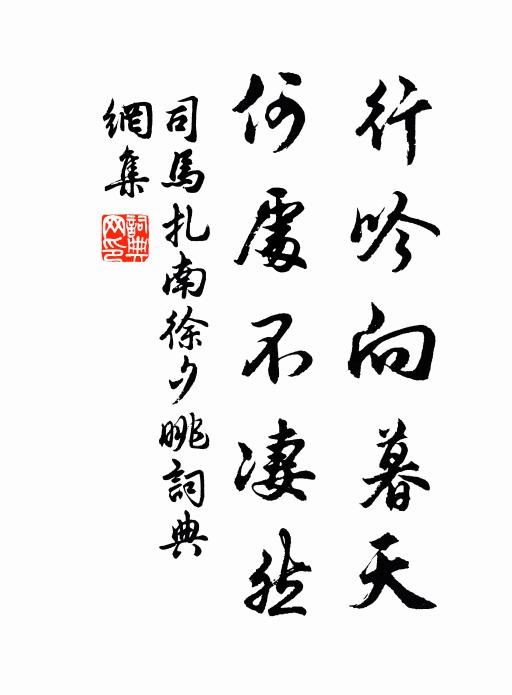 行吟向暮天
何處不淒然
司馬扎南徐夕眺詞典
網集
詞典網印